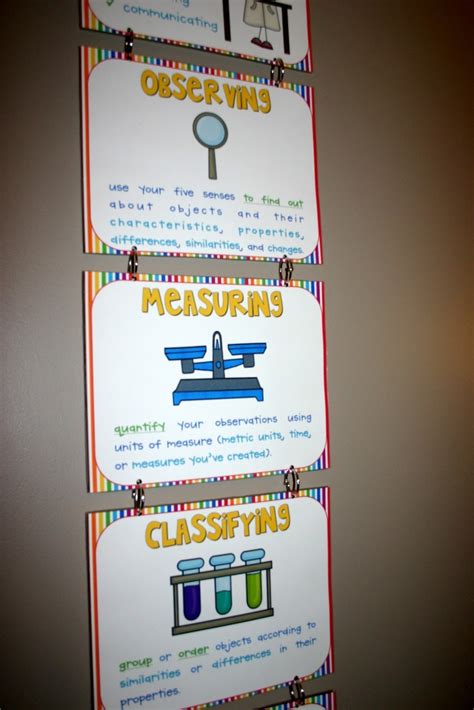 communicating
OBSERVING
use your five senses to find out
about objects and their
characteristics, properties,
differences, similarities, and changes.
MEASURING
quantify your observations using
units of measure (metric units, time,
or measures you've created).
CLASSIFYING
group or order objects according to
similarities or differences in their
properties.